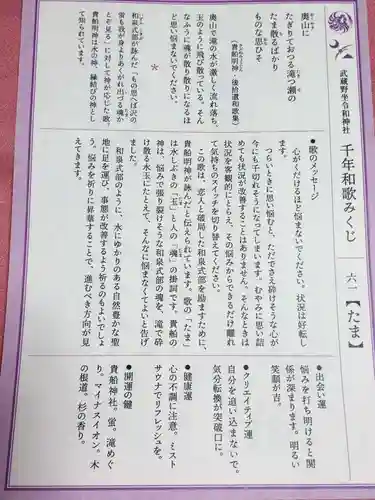 武蔵野坐令和神社
千年和歌みくじ
六二【たま】
奥山に
たぎりておつる滝つ瀬の
たま散るばかり
ものな思ひそ
(貴船明神・後拾遺和歌集)
奥山で滝の水が激しく流れ落ち、
玉のように飛び散っている。そん
なふうに魂が散り散りになるほ
ど思い悩まないでください。
*
和泉式部が詠んだ「もの思へば沢の
蛍も我が身よりあくがれ出づる魂か
とぞ見る」に対して神が応じた歌。
貴船明神は水の神、縁結びの神とし
て知られています。
●歌のメッセージ
心がくだけるほど悩まないでください。状況は好転し
ます。
つらいときに思い悩むと、ただでさえ砕けそうな心が
今にも千切れそうになってしまいます。むやみに思い詰
めても状況が改善することはありません。そんなときは
状況を客観的にとらえ、その悩みからできるだけ離れ
て気持ちのスイッチを切り替えてください。
この歌は、恋人と破局した和泉式部を励ますために、
貴船明神が詠んだと伝えられています。歌の「たま」
は水しぶきの「玉」と人の「魂」の掛詞です。貴船の
神は、悩みで張り裂けそうな和泉式部の魂を、滝で砕
け散る水玉にたとえて、そんなに悩まなくてよいと告げ
ました。
和泉式部のように、水にゆかりのある自然豊かな聖
地に足を運び、事態が改善するよう祈るのもよいでしょ
う。悩みを祈りに昇華することで、進むべき方向が見
えてきます。
●出会い運
悩みを打ち明けると関
係が深まります。明るい
笑顔が吉。
●クリエイティブ運
自分を追い込まないで。
気分転換が突破口に。
●健康運
心の不調に注意。ミスト
サウナでリフレッシュを。
●開運の鍵
貴船神社。蛍。滝めぐ
り。マイナスイオン。木
の根道。杉の香り。